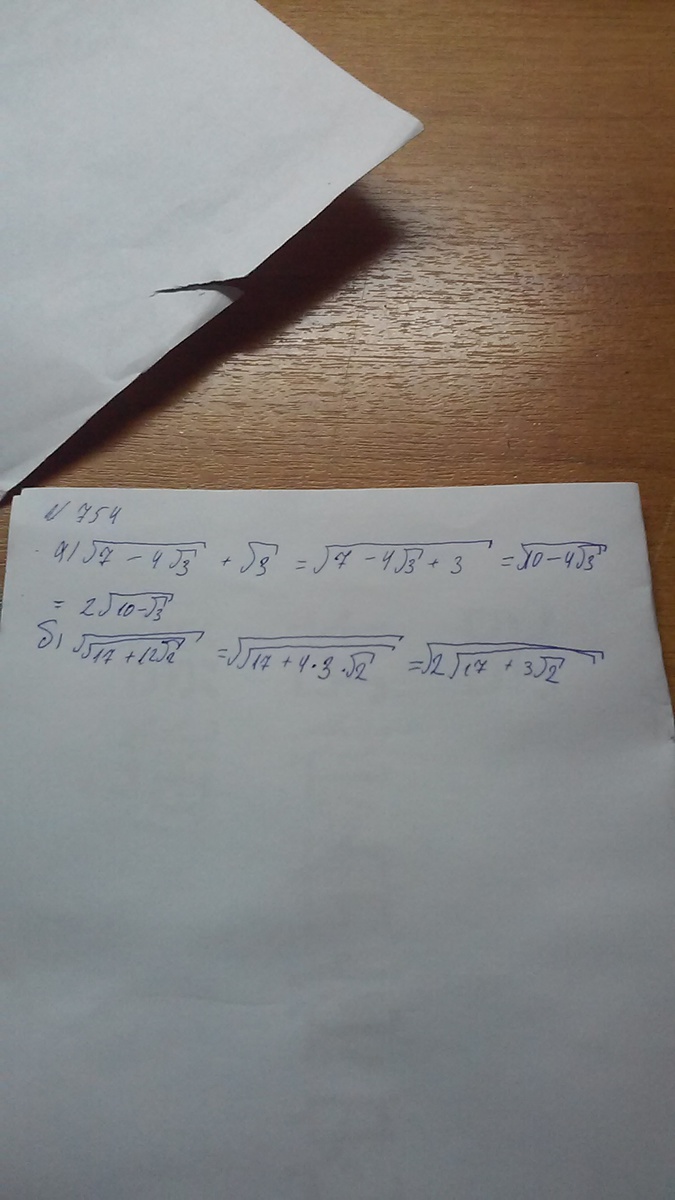 N 754
а) √(7 - 4√3) + √3 = √(7 - 4√3 + 3) = √(10 - 4√3)
= 2√(10 - √3)
б) √(√(17 + 12√2)) = √(√(17 + 4·3·√2)) = √(2√(17 + 3√2))